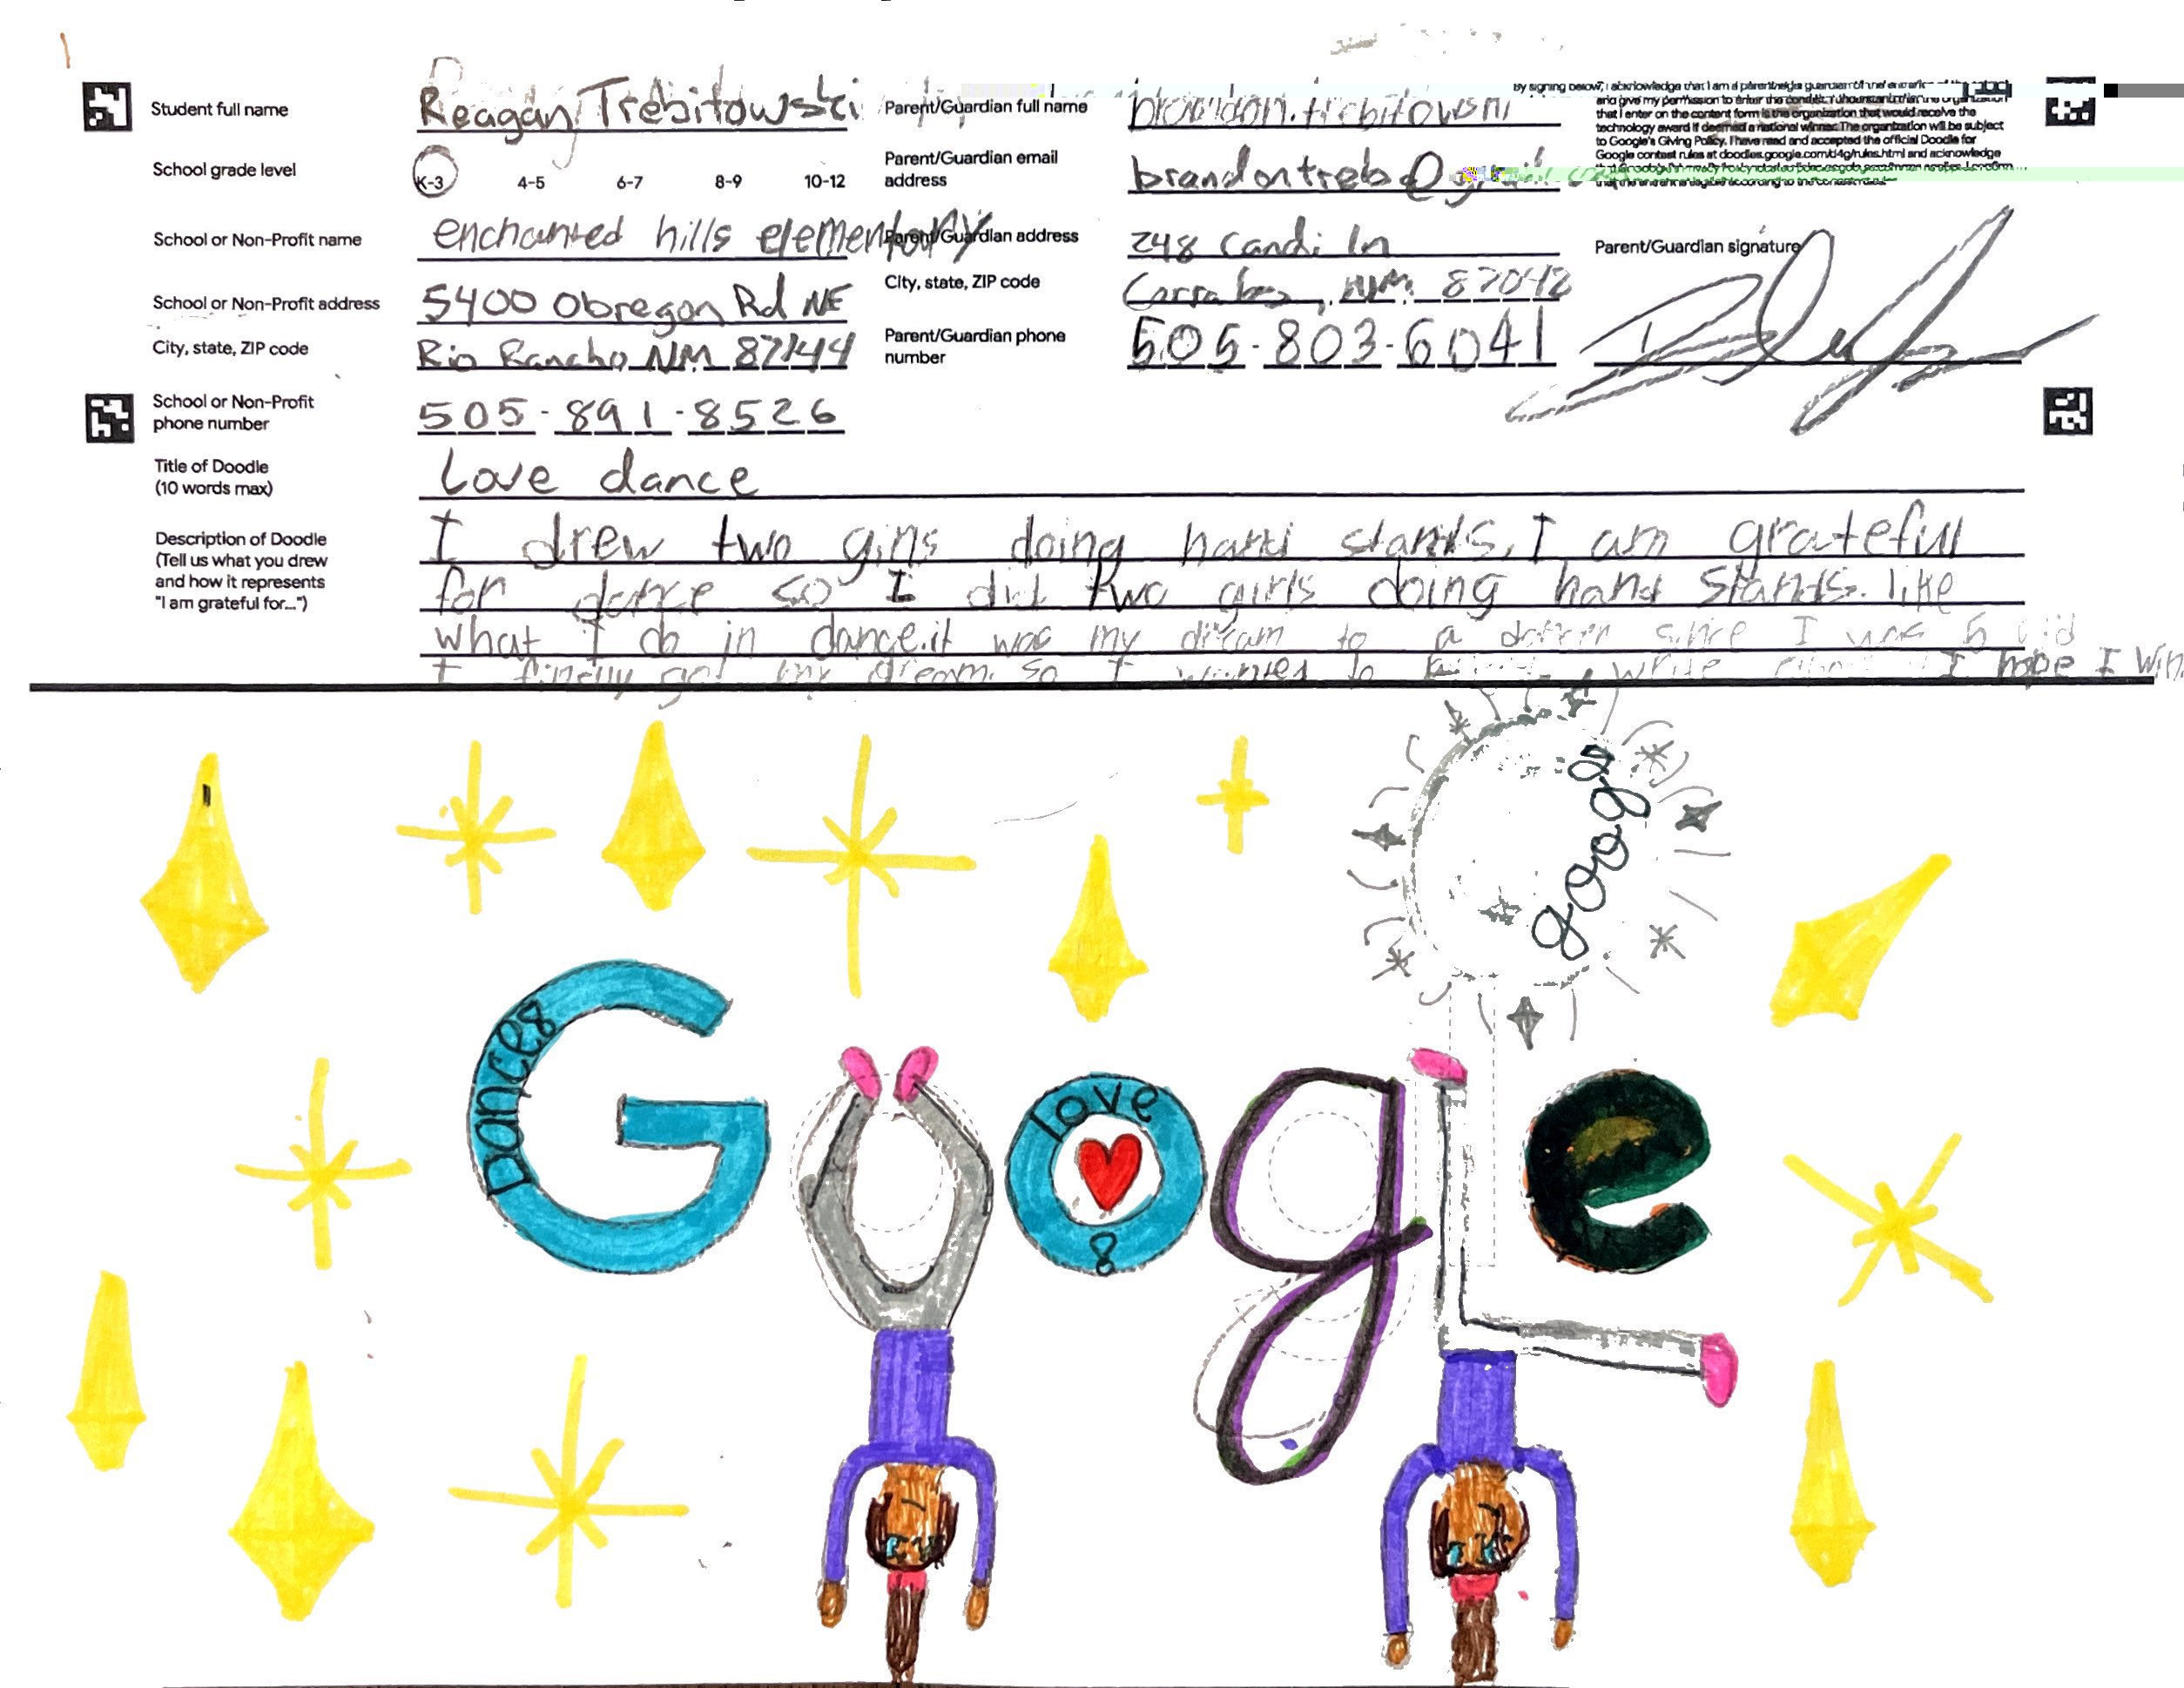 Student full name Reagan Trebitowski
School grade level K-3 4-5 6-7 8-9 10-12
School or Non-Profit name enchanted hills elementary
School or Non-Profit address 5400 Obregon Rd NE
City, state, ZIP code Rio Rancho, NM 87144
School or Non-Profit phone number 505-891-8526
Parent/Guardian full name
Parent/Guardian email address
Parent/Guardian address 248 Candi ln
City, state, ZIP code NM
Parent/Guardian phone number 505-803-6041
By signing below, I acknowledge that I am a parent/legal guardian of
and give my permission to enter the contest.
that I enter on the content form is the organization that would receive the
technology award if deemed a national winner. The organization will be subject
to Google's Giving Policy. I have read and accepted the official Doodle for
Google contest rules at doodles.google.com/d4g/rules.html and acknowledge
Parent/Guardian signature
Title of Doodle
(10 words max) Love dance
Description of Doodle
(Tell us what you drew
and how it represents
"I am grateful for...")
I drew two girls doing hand stands. I am grateful
for dance so I did two girls doing hand stands. like
what I do in dance.it was my dream to a since I was 5
I got my dream. so I to write I hope I win.
google
Google
Dances
love
8